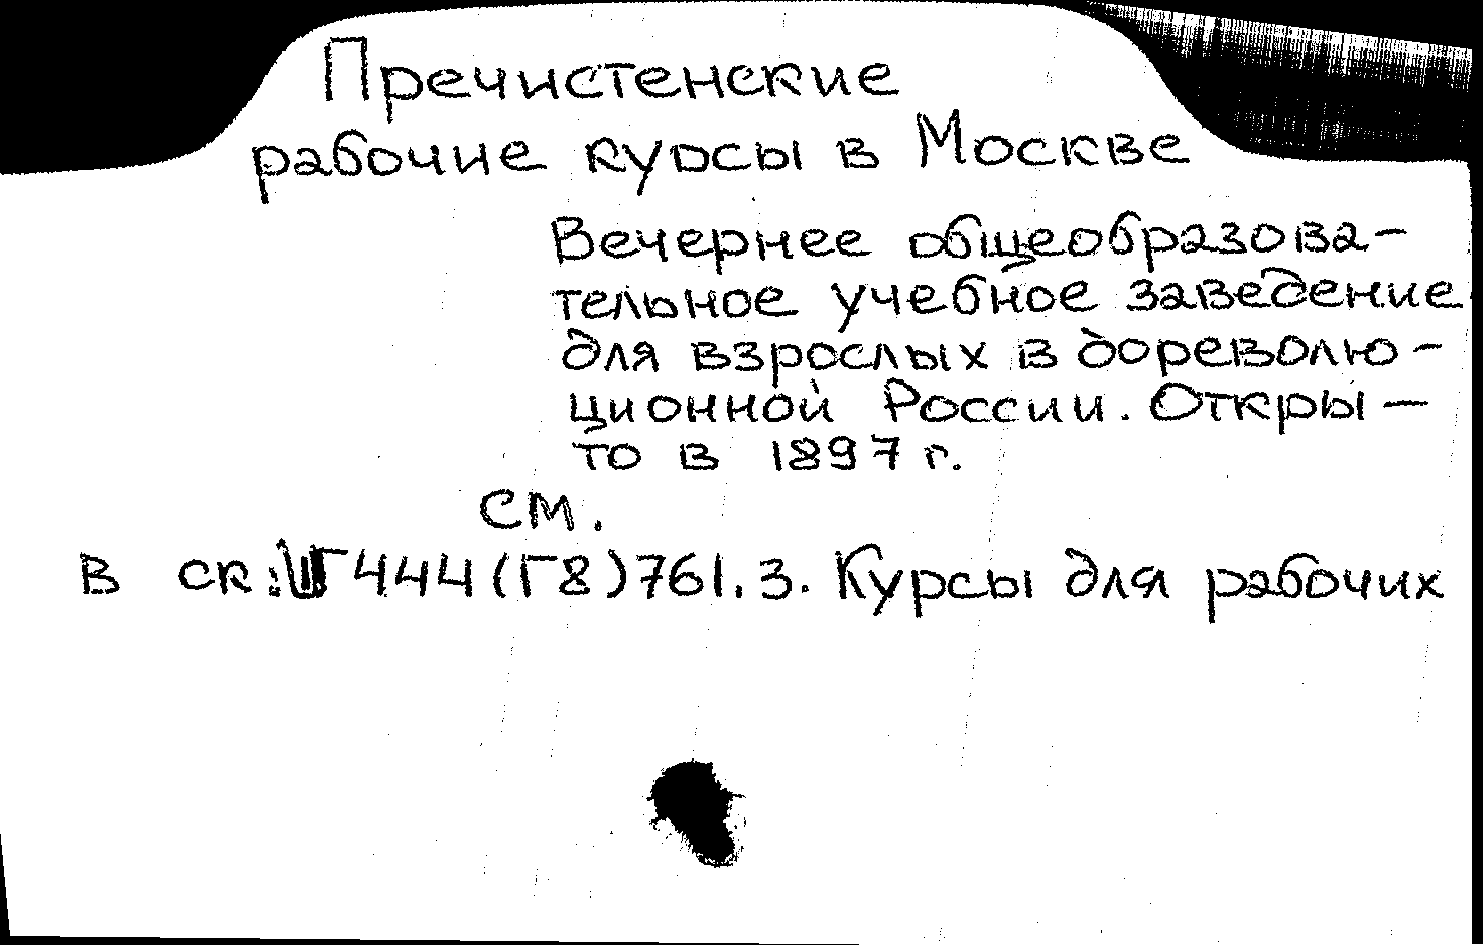 Пречистенские
рабочие курсы в Москве
Вечернее общеобразова-
тельное учебное заведение
для взрослых в дореволю-
ционной России. Откры-
то в 1897 г.
см.
в ск. Г444(Г8)761.3. Курсы для рабочих